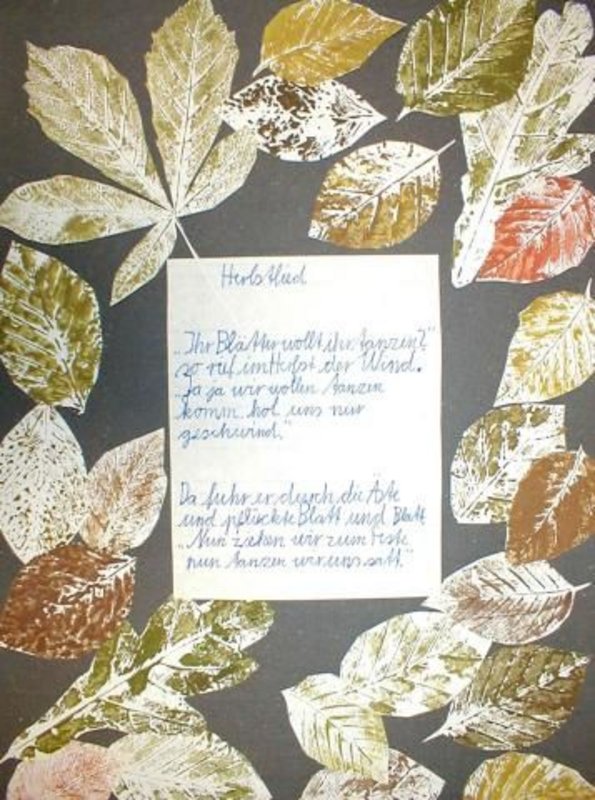 Herbstlied
„Ihr Blätter wollt ihr tanzen?"
so rief im Herbst der Wind.
„Ja ja wir wollen tanzen
komm hol uns nur
geschwind."
Da fuhr er durch die Äste
und pflückte Blatt und Blatt
„Nun ziehen wir zum Feste
nun tanzen wir uns satt."